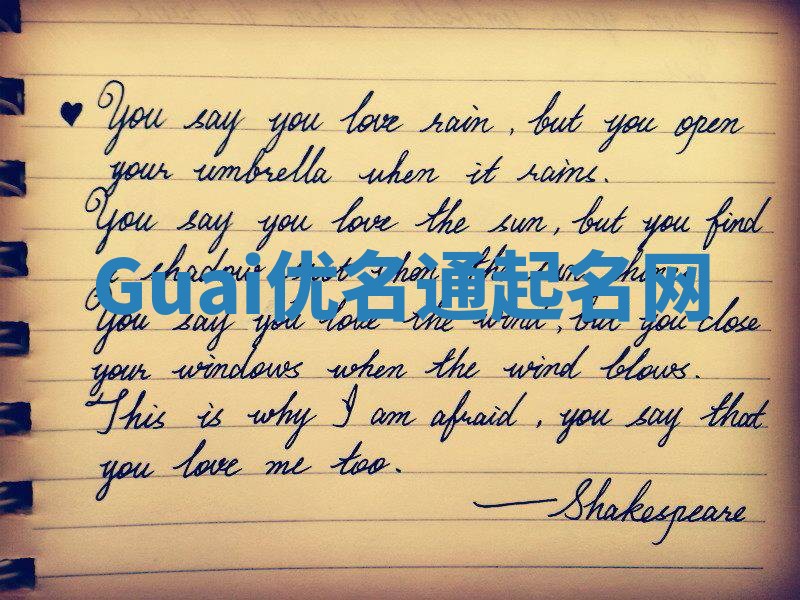 ♥ You say you love rain, but you open
your umbrella when it rains.
You say you love the sun, but you find
a shadow spot when the sun shines.
Guai优名通起名网
You say you love the wind, but you close
your windows when the wind blows.
This is why I am afraid, you say that
you love me too.
—Shakespeare